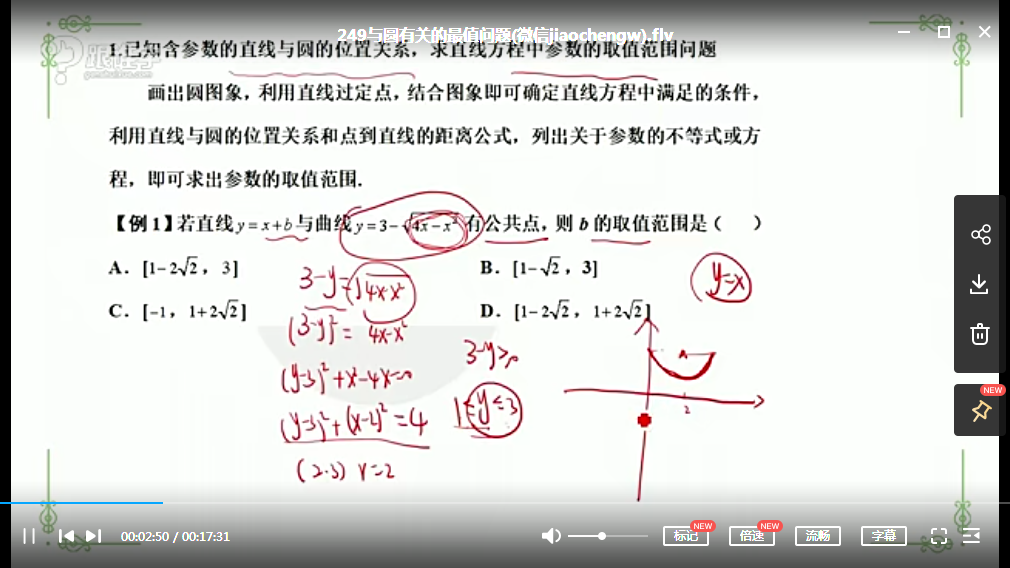 249与圆有关的最值问题(微信jiaochengw).flv
跟谁学
1.已知含参数的直线与圆的位置关系，求直线方程中参数的取值范围问题
画出圆图象，利用直线过定点，结合图象即可确定直线方程中满足的条件，
利用直线与圆的位置关系和点到直线的距离公式，列出关于参数的不等式或方
程，即可求出参数的取值范围.
【例1】若直线y=x+b与曲线y=3-√4x-x²有公共点，则b的取值范围是（ ）
A．[1-2√2，3]
B．[1-√2，3]
C．[-1，1+2√2]
D．[1-2√2，1+2√2]
y=x
3-y=√4x-x²
(3-y)²=4x-x²
3-y≥0
(y-3)²+x²-4x=0
1≤y≤3
(y-3)²+(x-2)²=4
(2.3) r=2
2
NEW
00:02:50 / 00:17:31
标记
NEW
倍速
NEW
流畅
字幕